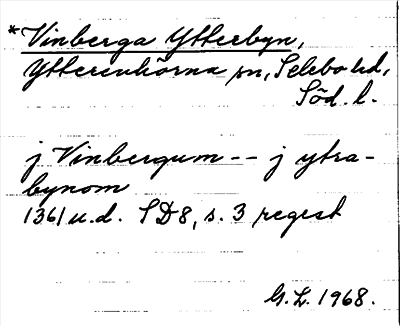 *Vinberga Ytterbyn,
Ytterenhörna sn, Selebo hd,
Söd. l.
j Vinbergum -- j ytra-
bynom
1361 u.d. SD8, s. 3 regest
G.L. 1968.